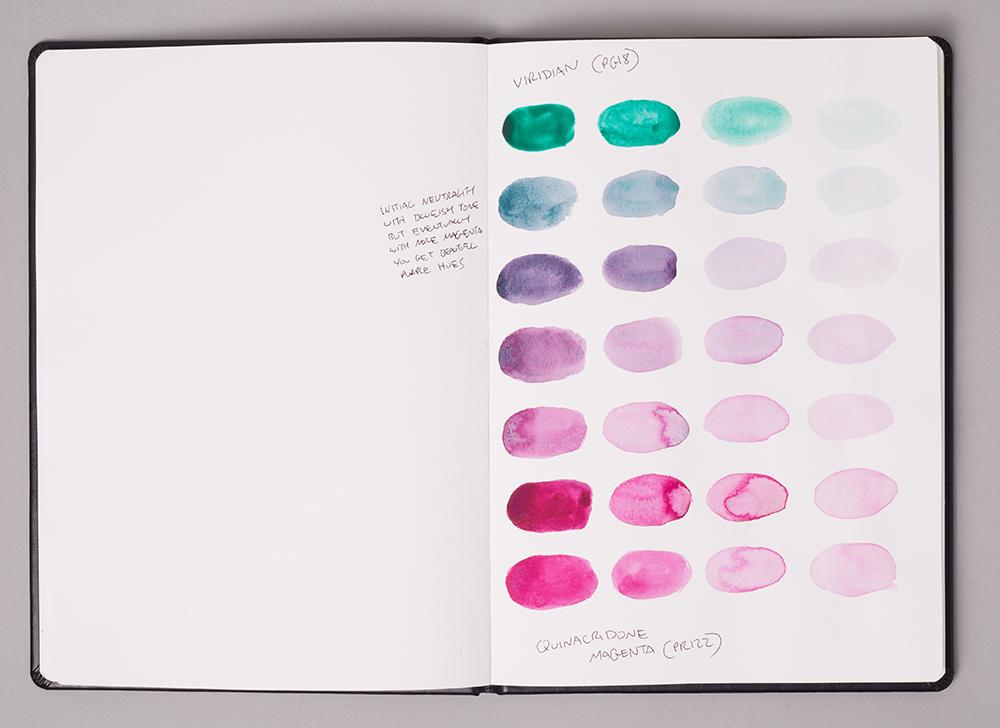 VIRIDIAN (PG18)
INITIAL NEUTRALITY
WITH BLUEISH TONE
BUT EVENTUALLY
WITH MORE MAGENTA
YOU GET BEAUTIFUL
PURPLE HUES
QUINACRIDONE
MAGENTA (PR122)